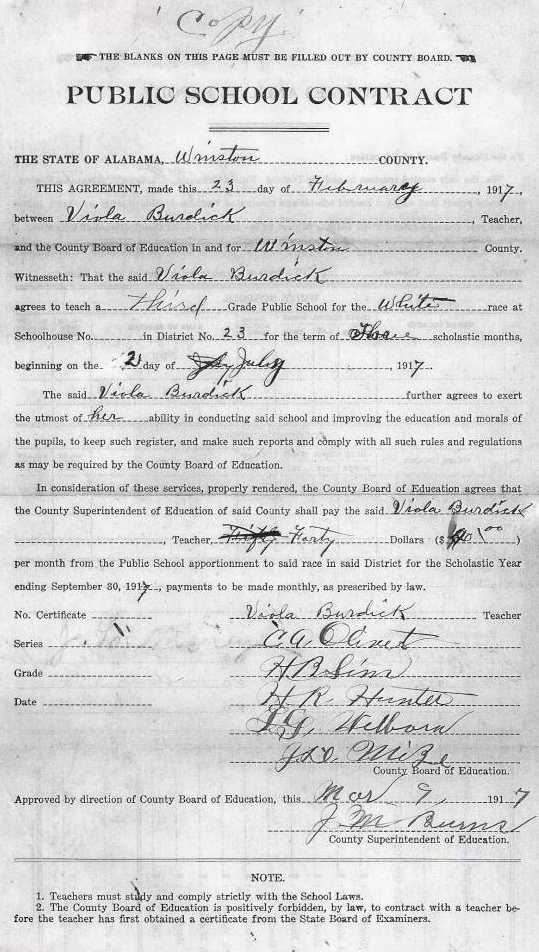 Copy.
THE BLANKS ON THIS PAGE MUST BE FILLED OUT BY COUNTY BOARD.
PUBLIC SCHOOL CONTRACT
THE STATE OF ALABAMA, Winston COUNTY.
THIS AGREEMENT, made this 23 day of February, 1917,
between Viola Burdick, Teacher,
and the County Board of Education in and for Winston County.
Witnesseth: That the said Viola Burdick
agrees to teach a third Grade Public School for the White race at
Schoolhouse No. in District No. 23 for the term of Three scholastic months,
beginning on the 2 day of July, 1917.
The said Viola Burdick further agrees to exert
the utmost of her ability in conducting said school and improving the education and morals of
the pupils, to keep such register, and make such reports and comply with all such rules and regulations
as may be required by the County Board of Education.
In consideration of these services, properly rendered, the County Board of Education agrees that
the County Superintendent of Education of said County shall pay the said Viola Burdick
, Teacher, Fifty Forty Dollars ($40.00)
per month from the Public School apportionment to said race in said District for the Scholastic Year
ending September 30, 1917, payments to be made monthly, as prescribed by law.
No. Certificate Viola Burdick Teacher
Series C. A. Olivet
Grade H B Sims
Date H. R. Hunter
Welborn
Mize
County Board of Education.
Approved by direction of County Board of Education, this Mar 9, 1917
J. M Burns
County Superintendent of Education.
NOTE.
1. Teachers must study and comply strictly with the School Laws.
2. The County Board of Education is positively forbidden, by law, to contract with a teacher be-
fore the teacher has first obtained a certificate from the State Board of Examiners.